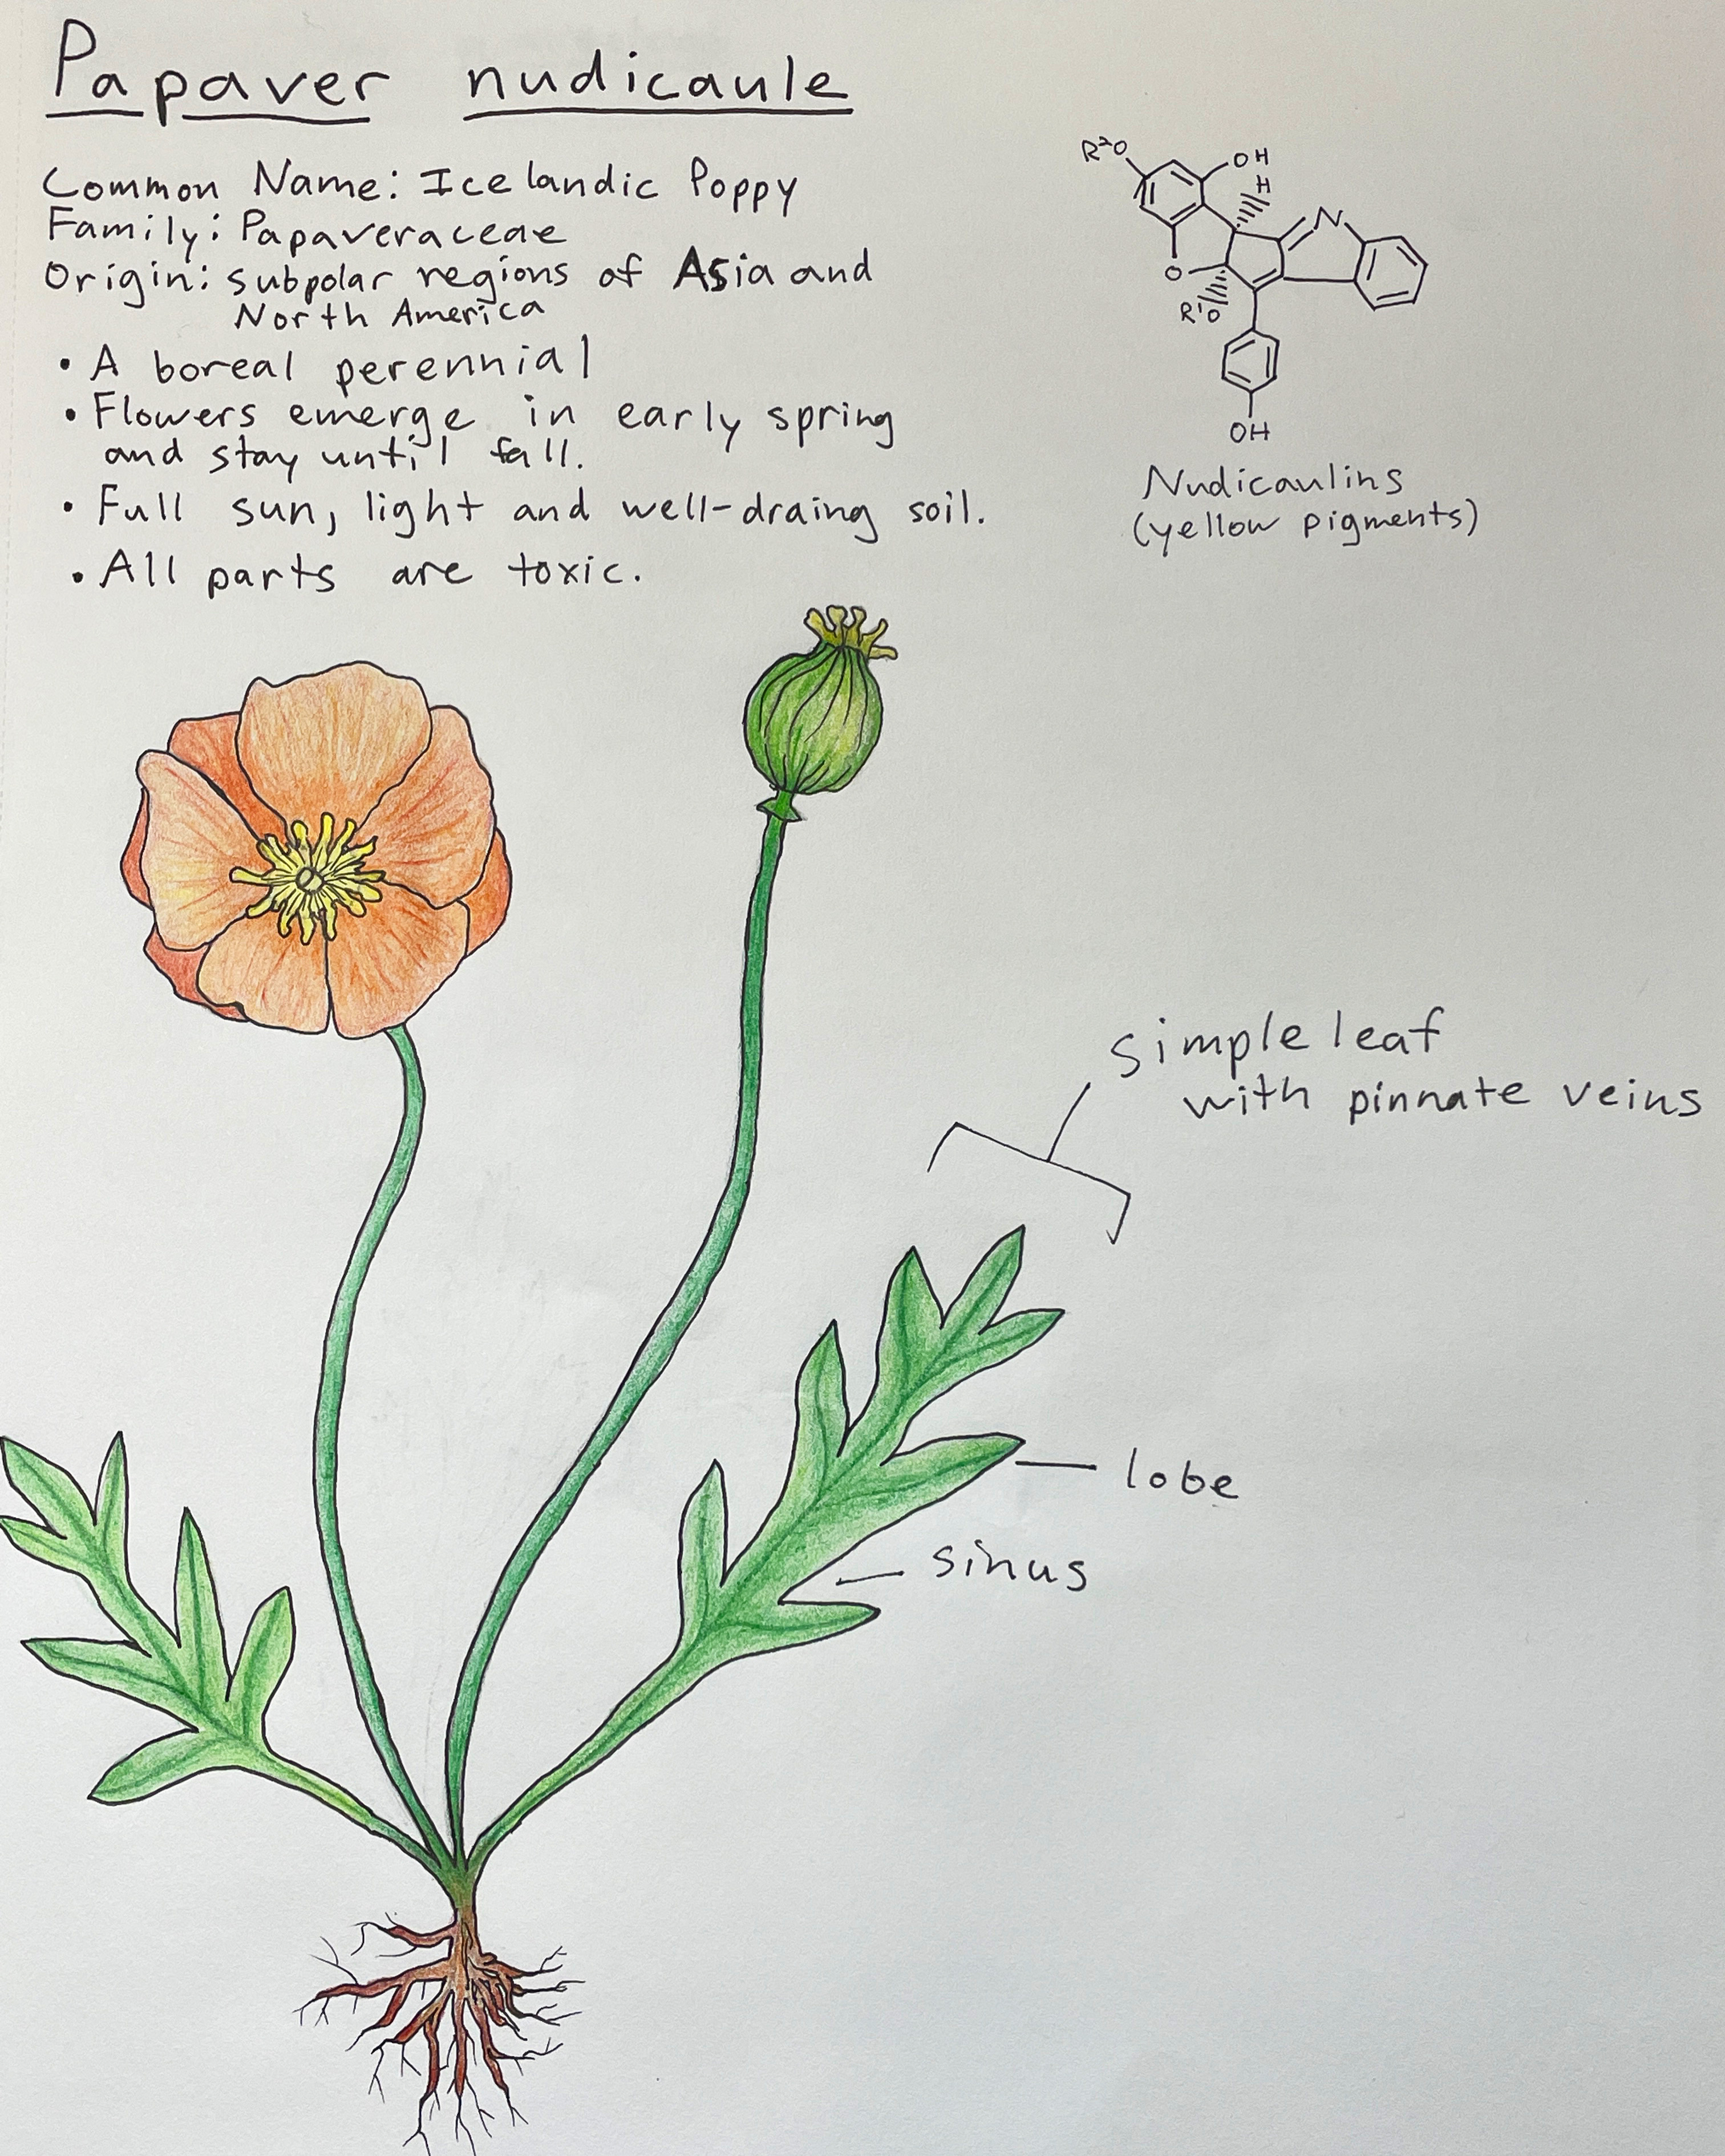 Papaver nudicaule
Common Name: Icelandic Poppy
Family: Papaveraceae
Origin: subpolar regions of Asia and
North America
• A boreal perennial
• Flowers emerge in early spring
and stay until fall.
• Full sun, light and well-draing soil.
• All parts are toxic.
R²O
OH
H
N
O
R¹O
OH
Nudicaulins
(yellow pigments)
simple leaf
with pinnate veins
lobe
sinus